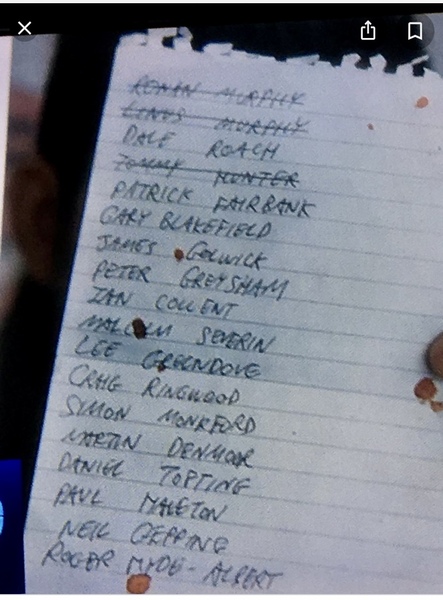 RONAN MURPHY
LINUS MURPHY
DALE ROACH
TOMMY HUNTER
PATRICK FAIRBANK
GARY BLAKEFIELD
JAMES GOLWICK
PETER GREYSHAM
IAN COLLENT
MALCOLM SEVERIN
LEE GREENDOVE
CRAIG RINGWOOD
SYMON MONKFORD
MARTIN DENMOOR
DANIEL TOPTING
PAUL MALETON
NEIL GEPPING
ROGER HYDE-ALBERT